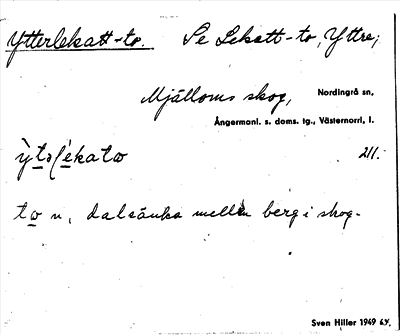 Ytterlekatt-to. Se Lekatt-to, Yttre;
Mjälloms skog, Nordingrå sn,
Ångermanl. s. doms. tg., Västernorrl, l.
211.
to n, dalsänka mellan berg i skog.
Sven Hiller 1949